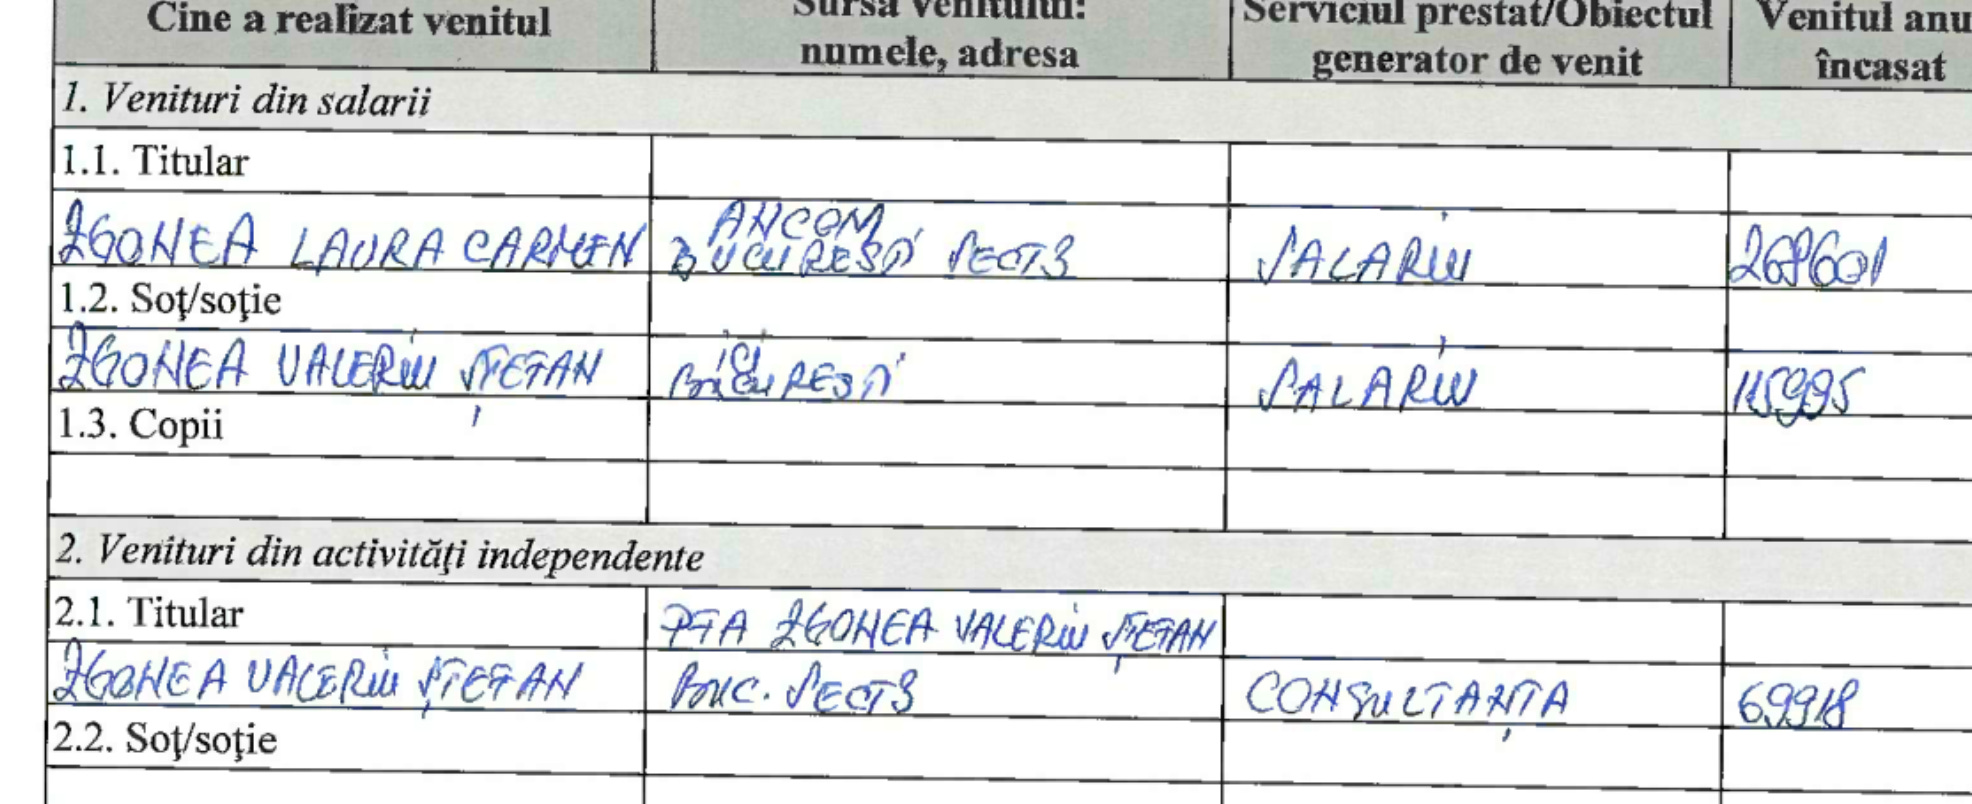 Cine a realizat venitul
Sursa venitului:
numele, adresa
Serviciul prestat/Obiectul
generator de venit
Venitul anu
încasat
1. Venituri din salarii
1.1. Titular
ZGONEA LAURA CARMEN
ANCOM
BUCUREȘTI SECT3
SALARIU
268601
1.2. Soţ/soţie
ZGONEA VALERIU ȘTEFAN
ICI
BUCUREȘTI
SALARIU
115995
1.3. Copii
2. Venituri din activităţi independente
2.1. Titular
PFA ZGONEA VALERIU ȘTEFAN
ZGONEA VALERIU ȘTEFAN
BUC. SECT3
CONSULTANȚA
69918
2.2. Soţ/soţie